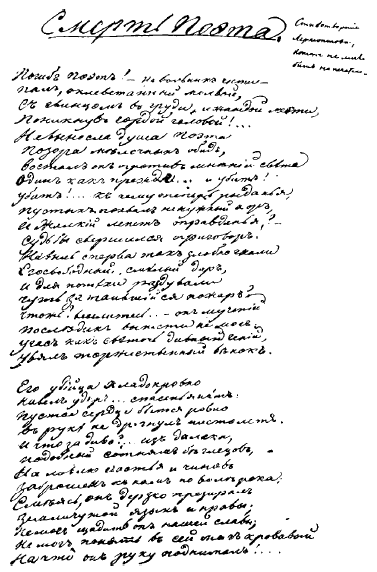 Смерть Поэта.
Стихотворение
Лермонтова,
Погибъ Поэтъ! — невольникъ чести —
палъ, оклеветанный молвой,
Съ свинцомъ въ груди, и жаждой мести,
Поникнувъ гордой головой!...
Не вынесла душа Поэта
Позора мелочныхъ обидъ,
возсталъ онъ противъ мнѣній свѣта
Одинъ какъ прежде... и убитъ!
убитъ!... къ чему теперь рыданья,
пустыхъ похвалъ ненужный хоръ,
И жалкій лепетъ оправданья?
Судьбы свершился приговоръ.
Не вы ль сперва такъ злобно гнали
Его свободный, смѣлый даръ,
и для потѣхи раздували
чуть затаившійся пожаръ?
чтожъ? веселитесь... — онъ мученій
послѣднихъ вынести не могъ:
угасъ какъ свѣточь дивный геній,
увялъ торжественный вѣнокъ.
Его убійца хладнокровно
навелъ ударъ... спасенья нѣтъ:
пустое сердце бьется ровно
въ рукѣ не дрогнулъ пистолетъ.
и что за диво?... изъ далека,
подобный сотнямъ бѣглецовъ,
На ловлю счастья и чиновъ
заброшенъ къ намъ по волѣ рока;
Смѣясь, онъ дерзко презиралъ
земли чужой языкъ и нравы;
не могъ щадить онъ нашей славы;
не могъ понять въ сей мигъ кровавой
На что онъ руку поднималъ!...